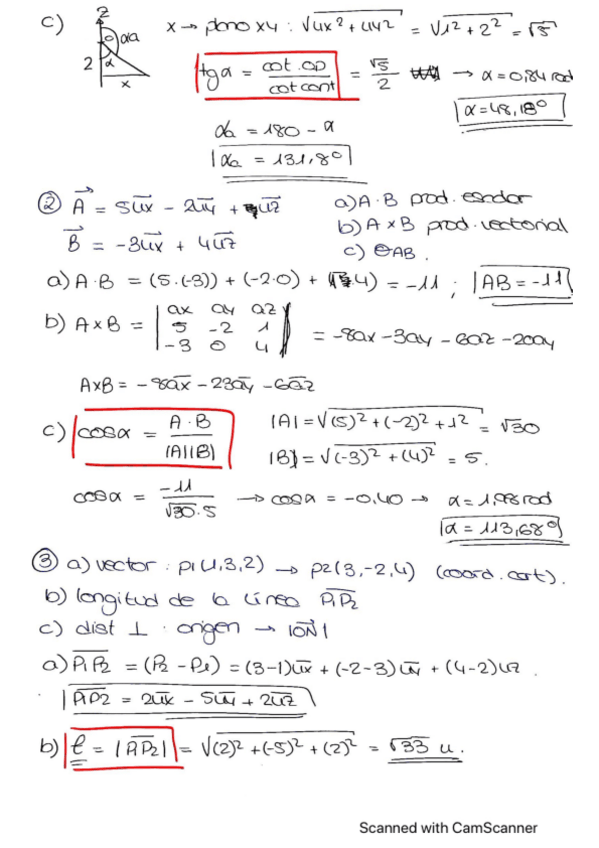 c) z αa α 2 x x → plano xy : √ux² + uy² = √1² + 2² = √5
tgα = cot.op / cot cont = √5 / 2 → α = 0,84 rad
α = 48,18º
αa = 180 - α
αa = 131,8º
② A = 5ux - 2uy + uz a) A·B prod. escalar
B = -3ux + 4uz b) A x B prod. vectorial
c) θAB.
a) A·B = (5·(-3)) + (-2·0) + (1·4) = -11 ; AB = -11
b) A x B = | ax ay az | 5 -2 1 | -3 0 4 | = -8ax - 3ay - 6az - 20ay
AxB = -8ax - 23ay - 6az
c) cosα = A·B / |A||B| |A| = √(5)² + (-2)² + 1² = √30
|B| = √(-3)² + (4)² = 5.
cosα = -11 / √30·5 → cosα = -0,40 → α = 1,98 rad
α = 113,68º
③ a) vector : p1(1,3,2) → p2(3,-2,4) (coord. cart).
b) longitud de la línea P1P2
c) dist ⊥ · origen → |ON|
a) P1P2 = (P2 - P1) = (3-1)ux + (-2-3)uy + (4-2)uz.
P1P2 = 2ux - 5uy + 2uz
b) ℓ = |P1P2| = √(2)² + (-5)² + (2)² = √33 u.
Scanned with CamScanner